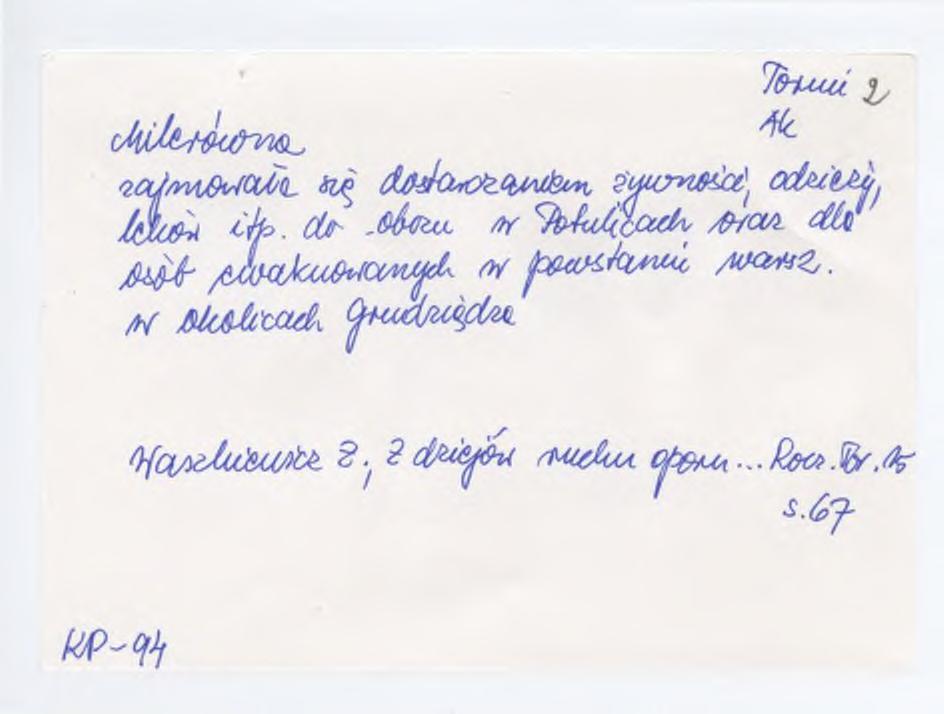 Toruń 2
AK
Milerówna
zajmowała się dostarczaniem żywności, odzieży,
leków itp. do obozu w Potulicach oraz dla
osób ewakuowanych w powstaniu warsz.
w okolicach Grudziądza
Waszkiewicz Z., Z dziejów ruchu oporu... Rocz. Tor. 15
s. 67
KP-94